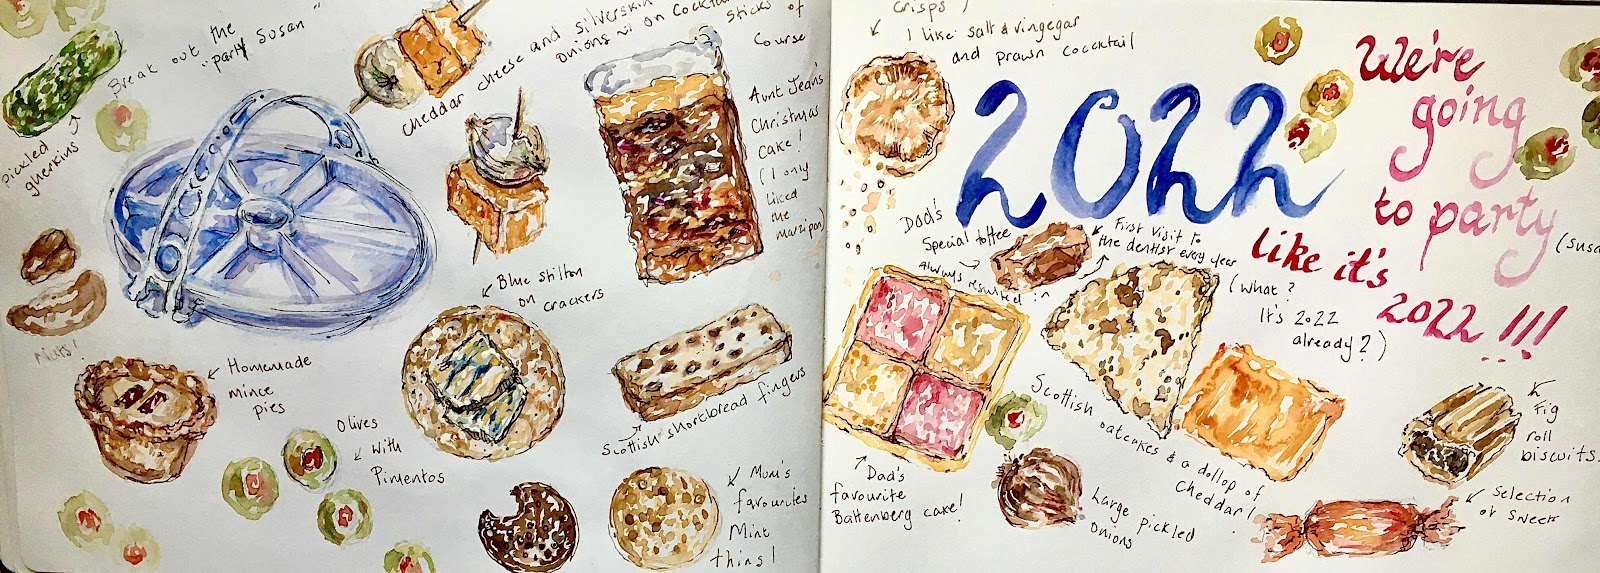 Break out the
"party Susan"
pickled
gherkins
Nuts!
Homemade
mince
pies
Olives
with
Pimentos
cheddar cheese and silverskin
onions on cocktail
sticks of
course
Blue stilton
on crackers
Aunt Jean's
Christmas
cake!
(I only
liked
the
marzipan)
Scottish shortbread fingers
Mum's
favourites
Mint
thins!
crisps!
I like salt & vingegar
and prawn coccktail
2022
We're
going
to party
(Susa
like it's
2022 !!!
Dad's
Special toffee
Always resulted in
First visit to
the dentist every year
(What?
It's 2022
already?)
Dad's
favourite
Battenberg cake!
Scottish
oatcakes & a dollop of
cheddar!
Large pickled
onions
Fig
roll
biscuits.
Selection
of sweets